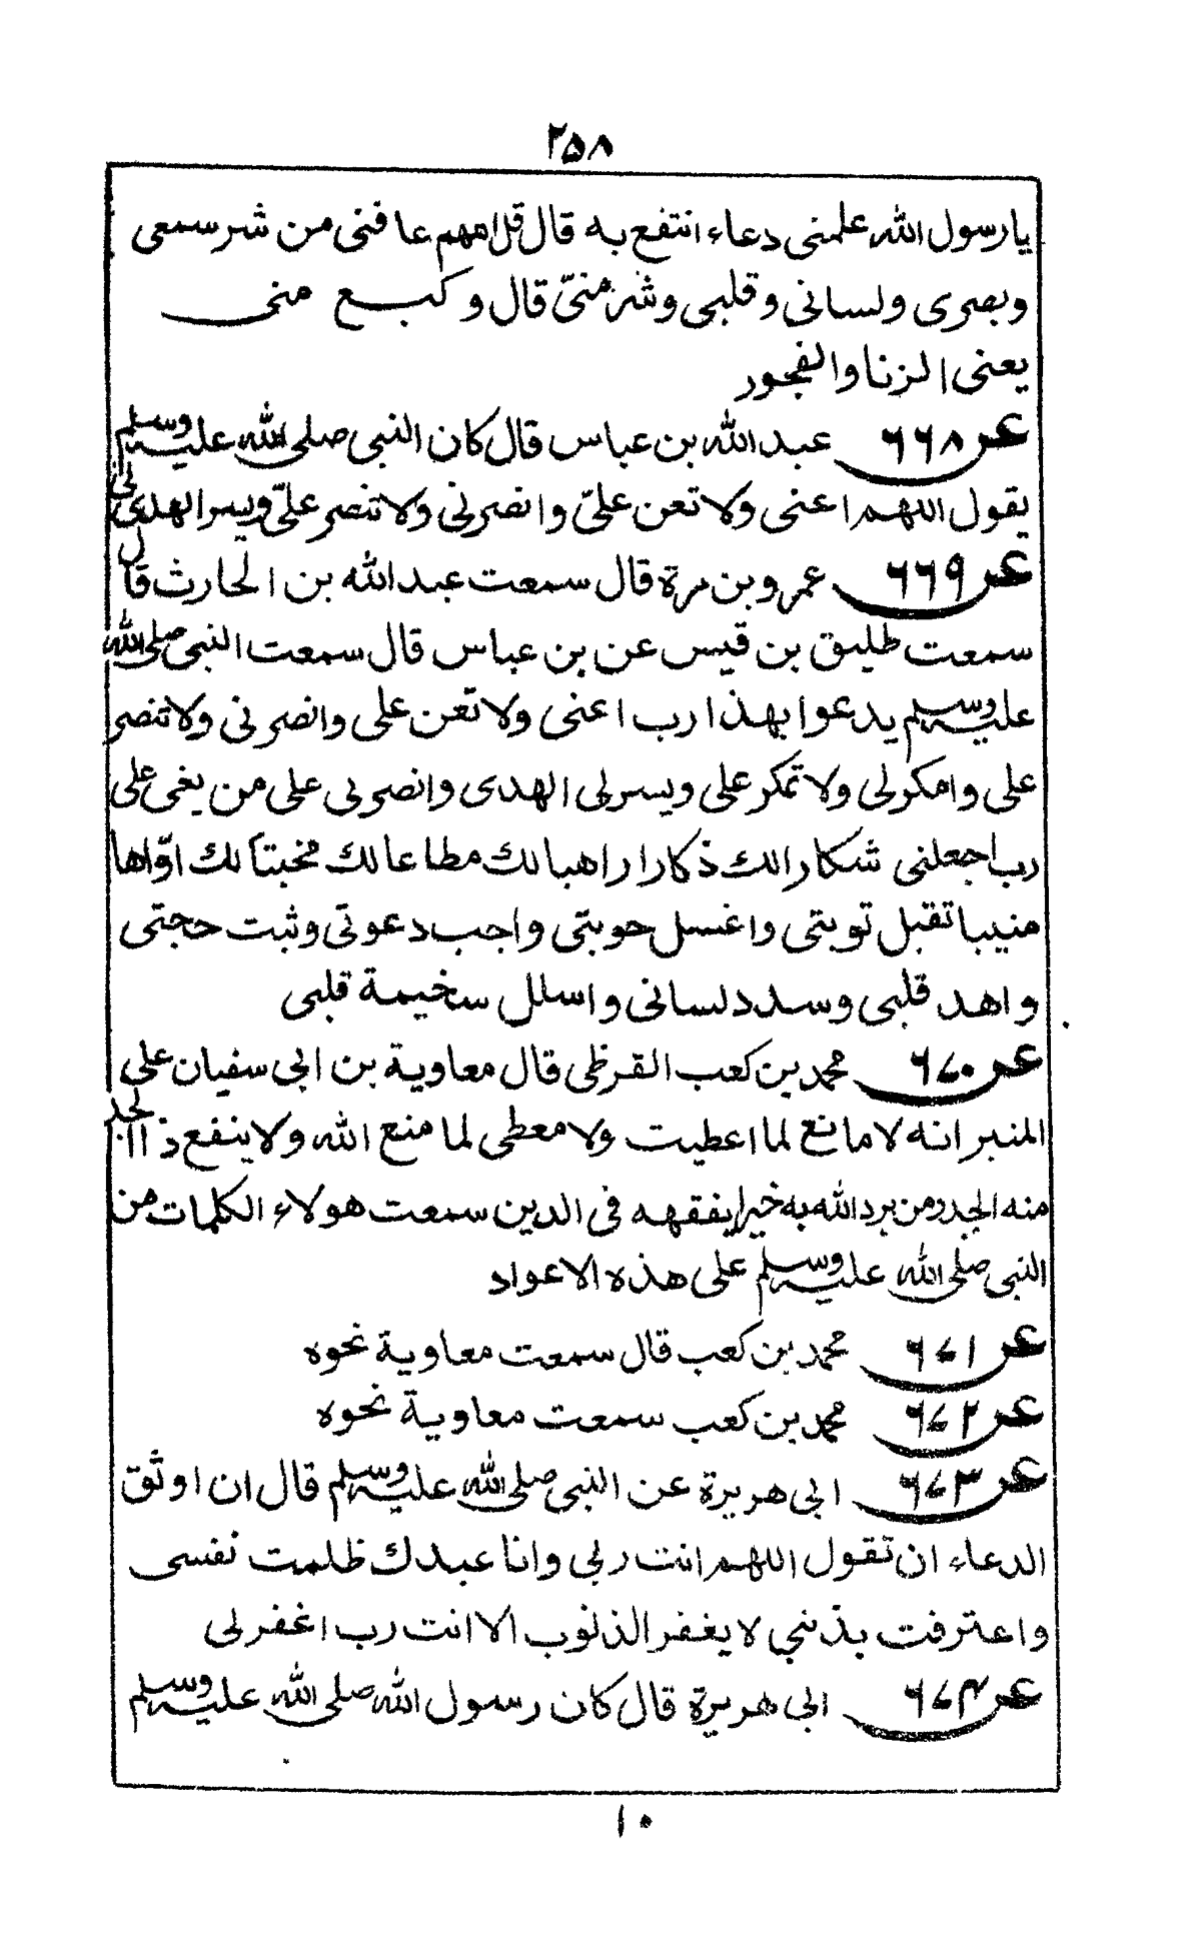 ٢٥٨
يا رسول الله علمنى دعاء انتفع به قال قل اللهم عافنى من شر سمعى
وبصرى ولسانى وقلبى وشر منىّ قال وكيع منى
يعنى الزنا والفجور
عـ ٦٦٨ عبد الله بن عباس قال كان النبى صلى الله عليه وسلم
يقول اللهم اعنى ولا تعن علىّ وانصرنى ولا تنصر علىّ ويسر الهدى لى
عـ ٦٦٩ عمرو بن مرة قال سمعت عبد الله بن الحارث قال
سمعت طليق بن قيس عن بن عباس قال سمعت النبى صلى الله
عليه وسلم يدعوا بهذا رب اعنى ولا تعن على وانصرنى ولا تنصر
على وامكرلى ولا تمكر على ويسرلى الهدى وانصرنى على من بغى على
رب اجعلنى شكارا لك ذكارا راهبا لك مطاعا لك مخبتاً لك اوّاها
منيبا تقبل توبتى واغسل حوبتى واجب دعوتى وثبت حجتى
واهد قلبى وسدد لسانى واسلل سخيمة قلبى
عـ ٦٧٠ محمد بن كعب القرظى قال معاوية بن ابى سفيان على
المنبر انه لا مانع لما اعطيت ولا معطى لما منع الله ولا ينفع ذا الجد
منه الجد ومن يرد الله به خيرا يفقهه فى الدين سمعت هولاء الكلمات من
النبى صلى الله عليه وسلم على هذه الاعواد
عـ ٦٧١ محمد بن كعب قال سمعت معاوية نحوه
عـ ٦٧٢ محمد بن كعب سمعت معاوية نحوه
عـ ٦٧٣ ابى هريرة عن النبى صلى الله عليه وسلم قال ان اوثق
الدعاء ان تقول اللهم انت ربى وانا عبدك ظلمت نفسى
واعترفت بذنبى لا يغفر الذنوب الا انت رب اغفرلى
عـ ٦٧٤ ابى هريرة قال كان رسول الله صلى الله عليه وسلم
١٠